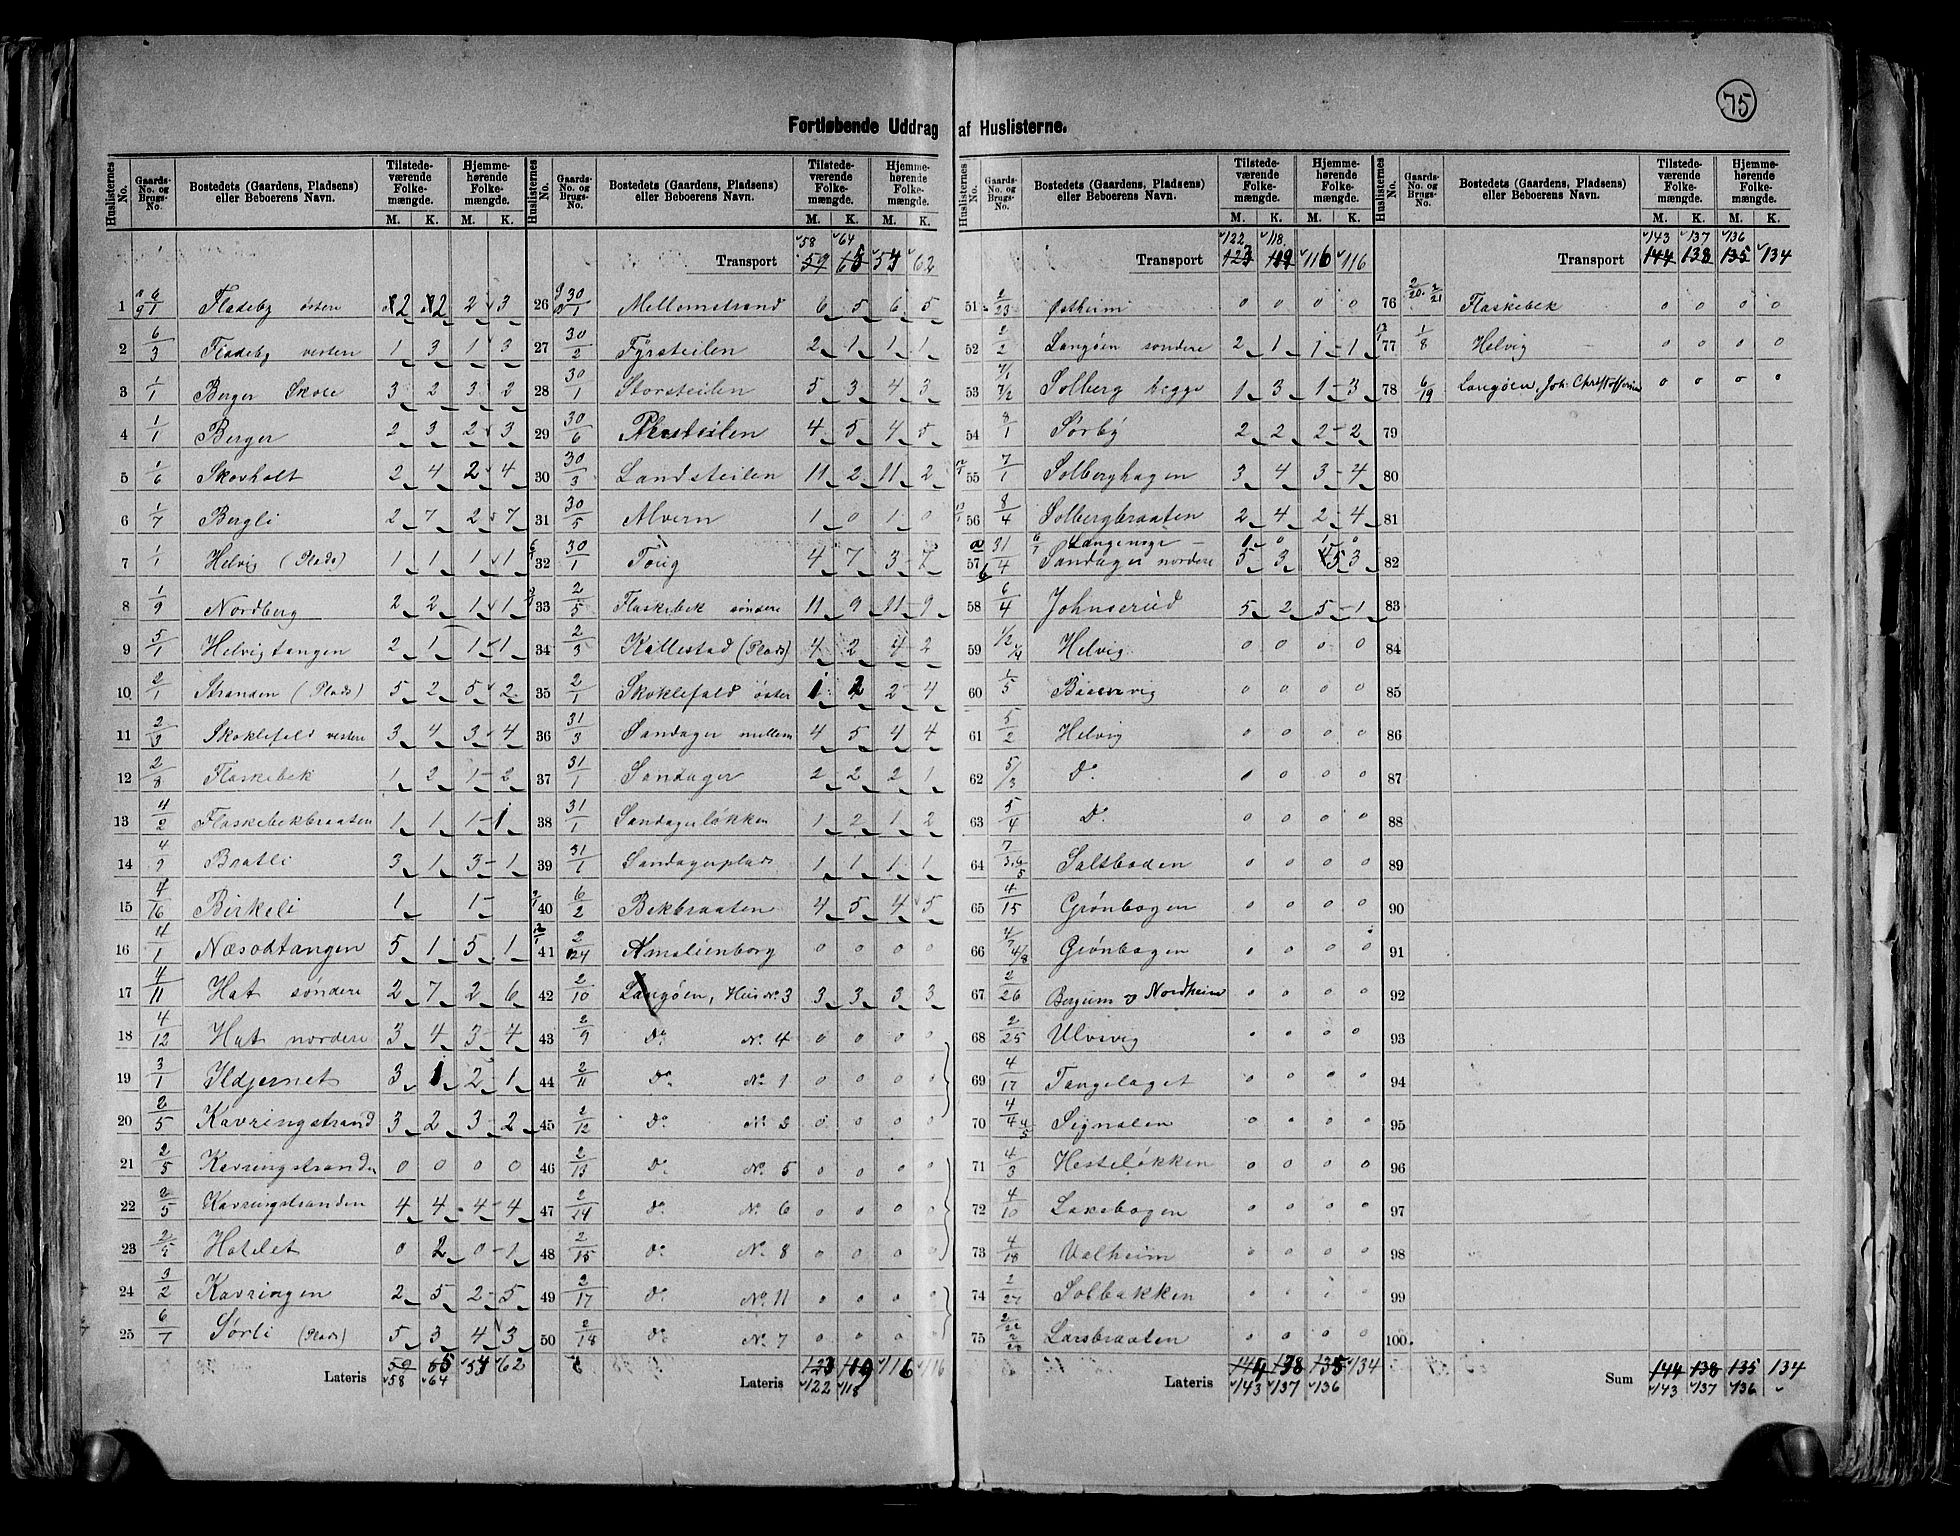 75
Fortløbende Uddrag af Huslisterne.
Huslisternes No. Gaards-No. og Brugs-No. Bostedets (Gaardens, Pladsens) eller Beboerens Navn. Tilstedeværende Folkemængde. M. K. Hjemmehørende Folkemængde. M. K.
1 6/1 Fladeby østre 2 2 2 3
2 6/3 Fladeby vestre 1 3 1 3
3 1/1 Berger Skole 3 2 3 2
4 1/1 Berger 2 3 2 3
5 1/6 Skovholt 2 4 2 4
6 1/7 Bergli 2 7 2 7
7 1/1 Helvig (Plads) 1 1 1 1
8 1/9 Nordberg 2 2 1 1
9 5/1 Helvigtangen 2 1 1 1
10 2/1 Stranden (Plads) 5 2 5 2
11 2/3 Skoklefald vestre 3 4 3 4
12 2/8 Flaskebek 1 2 1 2
13 4/2 Flaskebekbraaten 1 1 1 1
14 4/9 Baatli 3 1 3 1
15 4/16 Birkeli 1 1
16 4/1 Næsodtangen 5 1 5 1
17 4/11 Hat søndre 2 7 2 6
18 4/12 Hat nordre 3 4 3 4
19 3/1 Ildjernet 3 1 2 1
20 2/5 Kavringstrand 3 2 3 2
21 2/5 Kavringstranden 0 0 0 0
22 2/5 Kavringstranden 4 4 4 4
23 2/5 Hotelet 0 2 0 1
24 3/2 Kavringen 2 5 2 5
25 6/1 Sørli (Plads) 5 3 4 3
Lateris 59 65 54 62
58 64
Huslisternes No. Gaards-No. og Brugs-No. Bostedets (Gaardens, Pladsens) eller Beboerens Navn. Tilstedeværende Folkemængde. M. K. Hjemmehørende Folkemængde. M. K.
58 64
Transport 59 65 54 62
26 30/1 Mellemstrand 6 5 6 5
27 30/2 Fyrsteilen 2 1 1 1
28 30/1 Storsteilen 5 3 4 3
29 30/6 Plesteilen 4 5 4 5
30 30/3 Landsteilen 11 2 11 2
31 30/5 Alvern 1 0 1 0
32 30/1 Toug 4 7 3 7
33 2/5 Flaskebek søndre 11 9 11 9
34 2/3 Kallestad (Plads) 4 2 4 2
35 2/1 Skoklefald øster 1 2 2 4
36 31/3 Sandager mellem 4 5 4 4
37 31/1 Sandager 2 2 2 1
38 31/1 Sandagerløkken 1 2 1 2
39 31/1 Sandagerplads 1 1 1 1
40 6/2 Bekbraaten 4 5 4 5
41 2/24 Amalienborg 0 0 0 0
42 2/10 Langøen, Hus No. 3 3 3 3 3
43 2/9 Do. No. 4 0 0 0 0
44 2/11 Do. No. 1 0 0 0 0
45 2/12 Do. No. 2 0 0 0 0
46 2/13 Do. No. 5 0 0 0 0
47 2/14 Do. No. 6 0 0 0 0
48 2/15 Do. No. 8 0 0 0 0
49 2/17 Do. No. 11 0 0 0 0
50 2/18 Do. No. 7 0 0 0 0
Lateris 123 119 116 116
122 118
Huslisternes No. Gaards-No. og Brugs-No. Bostedets (Gaardens, Pladsens) eller Beboerens Navn. Tilstedeværende Folkemængde. M. K. Hjemmehørende Folkemængde. M. K.
122 118
Transport 123 119 116 116
51 2/23 Østheim 0 0 0 0
52 2/2 Langøen søndre 2 1 1 1
53 7/1 7/2 Solberg begge 1 3 1 3
54 8/1 Sørby 2 2 2 2
55 7/1 Solberghagen 3 4 3 4
56 8/4 Solbergbraaten 2 4 2 4
6/7 Langenoge 1 0 1 0
57 31/4 Sandager nordere 5 3 5 3
58 6/4 Johnserud 5 2 5 1
59 1/2 1/4 Helvig 0 0 0 0
60 1/5 0 0 0 0
61 5/2 Helvig 0 0 0 0
62 5/3 Do. 0 0 0 0
63 5/4 Do. 0 0 0 0
64 Saltboden 0 0 0 0
65 4/15 Grønbogen 0 0 0 0
66 4/7 4/8 Grønbogen 0 0 0 0
67 2/26 Bergum og Nordheim 0 0 0 0
68 2/25 Ulvsvig 0 0 0 0
69 4/17 Tangelaget 0 0 0 0
70 4/4 4/5 Signalen 0 0 0 0
71 4/3 Hesteløkken 0 0 0 0
72 4/10 Lakebogen 0 0 0 0
73 4/18 Valheim 0 0 0 0
74 2/27 Solbakken 0 0 0 0
75 2/22 Larsbraaten 0 0 0 0
Lateris 144 138 135 134
143 137 136
Huslisternes No. Gaards-No. og Brugs-No. Bostedets (Gaardens, Pladsens) eller Beboerens Navn. Tilstedeværende Folkemængde. M. K. Hjemmehørende Folkemængde. M. K.
143 137 136
Transport 144 138 135 134
76 2/20. 2/21 Flaskebek 0 0 0 0
77 1/8 Helvig 0 0 0 0
78 6/19 Langøen, Joh. Christoffersen 0 0 0 0
79
80
81
82
83
84
85
86
87
88
89
90
91
92
93
94
95
96
97
98
99
100
Sum 144 138 135 134
143 137 136